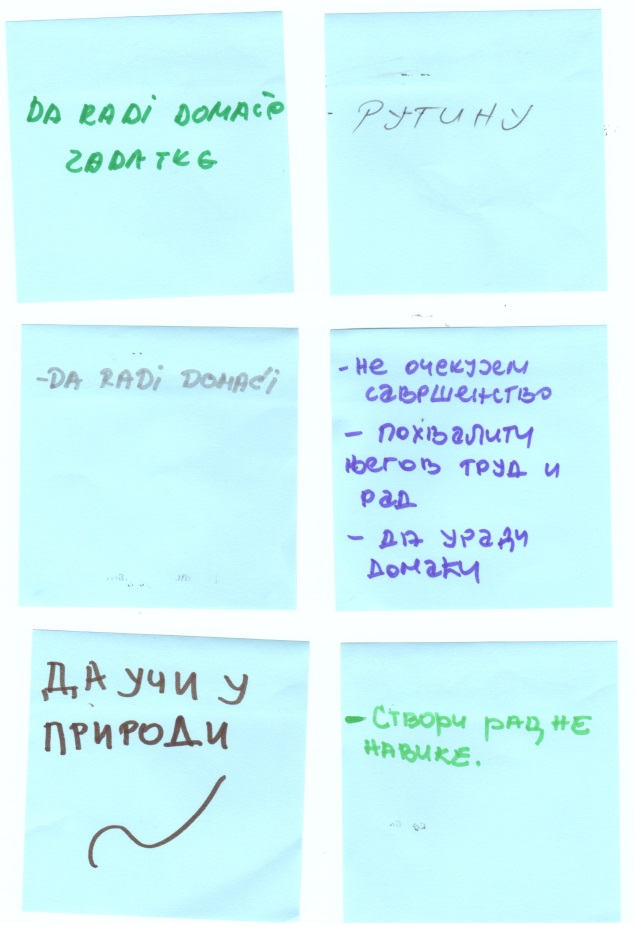 DA RADi DOMAĆE
ZADATKE
РУТИНУ
-DA RADi DOMAĆi
-НЕ ОЧЕКУЈЕМ
САВРШЕНСТВО
- ПОХВАЛИТИ
ЊЕГОВ ТРУД И
РАД
- ДА УРАДИ
ДОМАЋИ
ДА УЧИ У
ПРИРОДИ
-СТВОРИ РАДНЕ
НАВИКЕ.